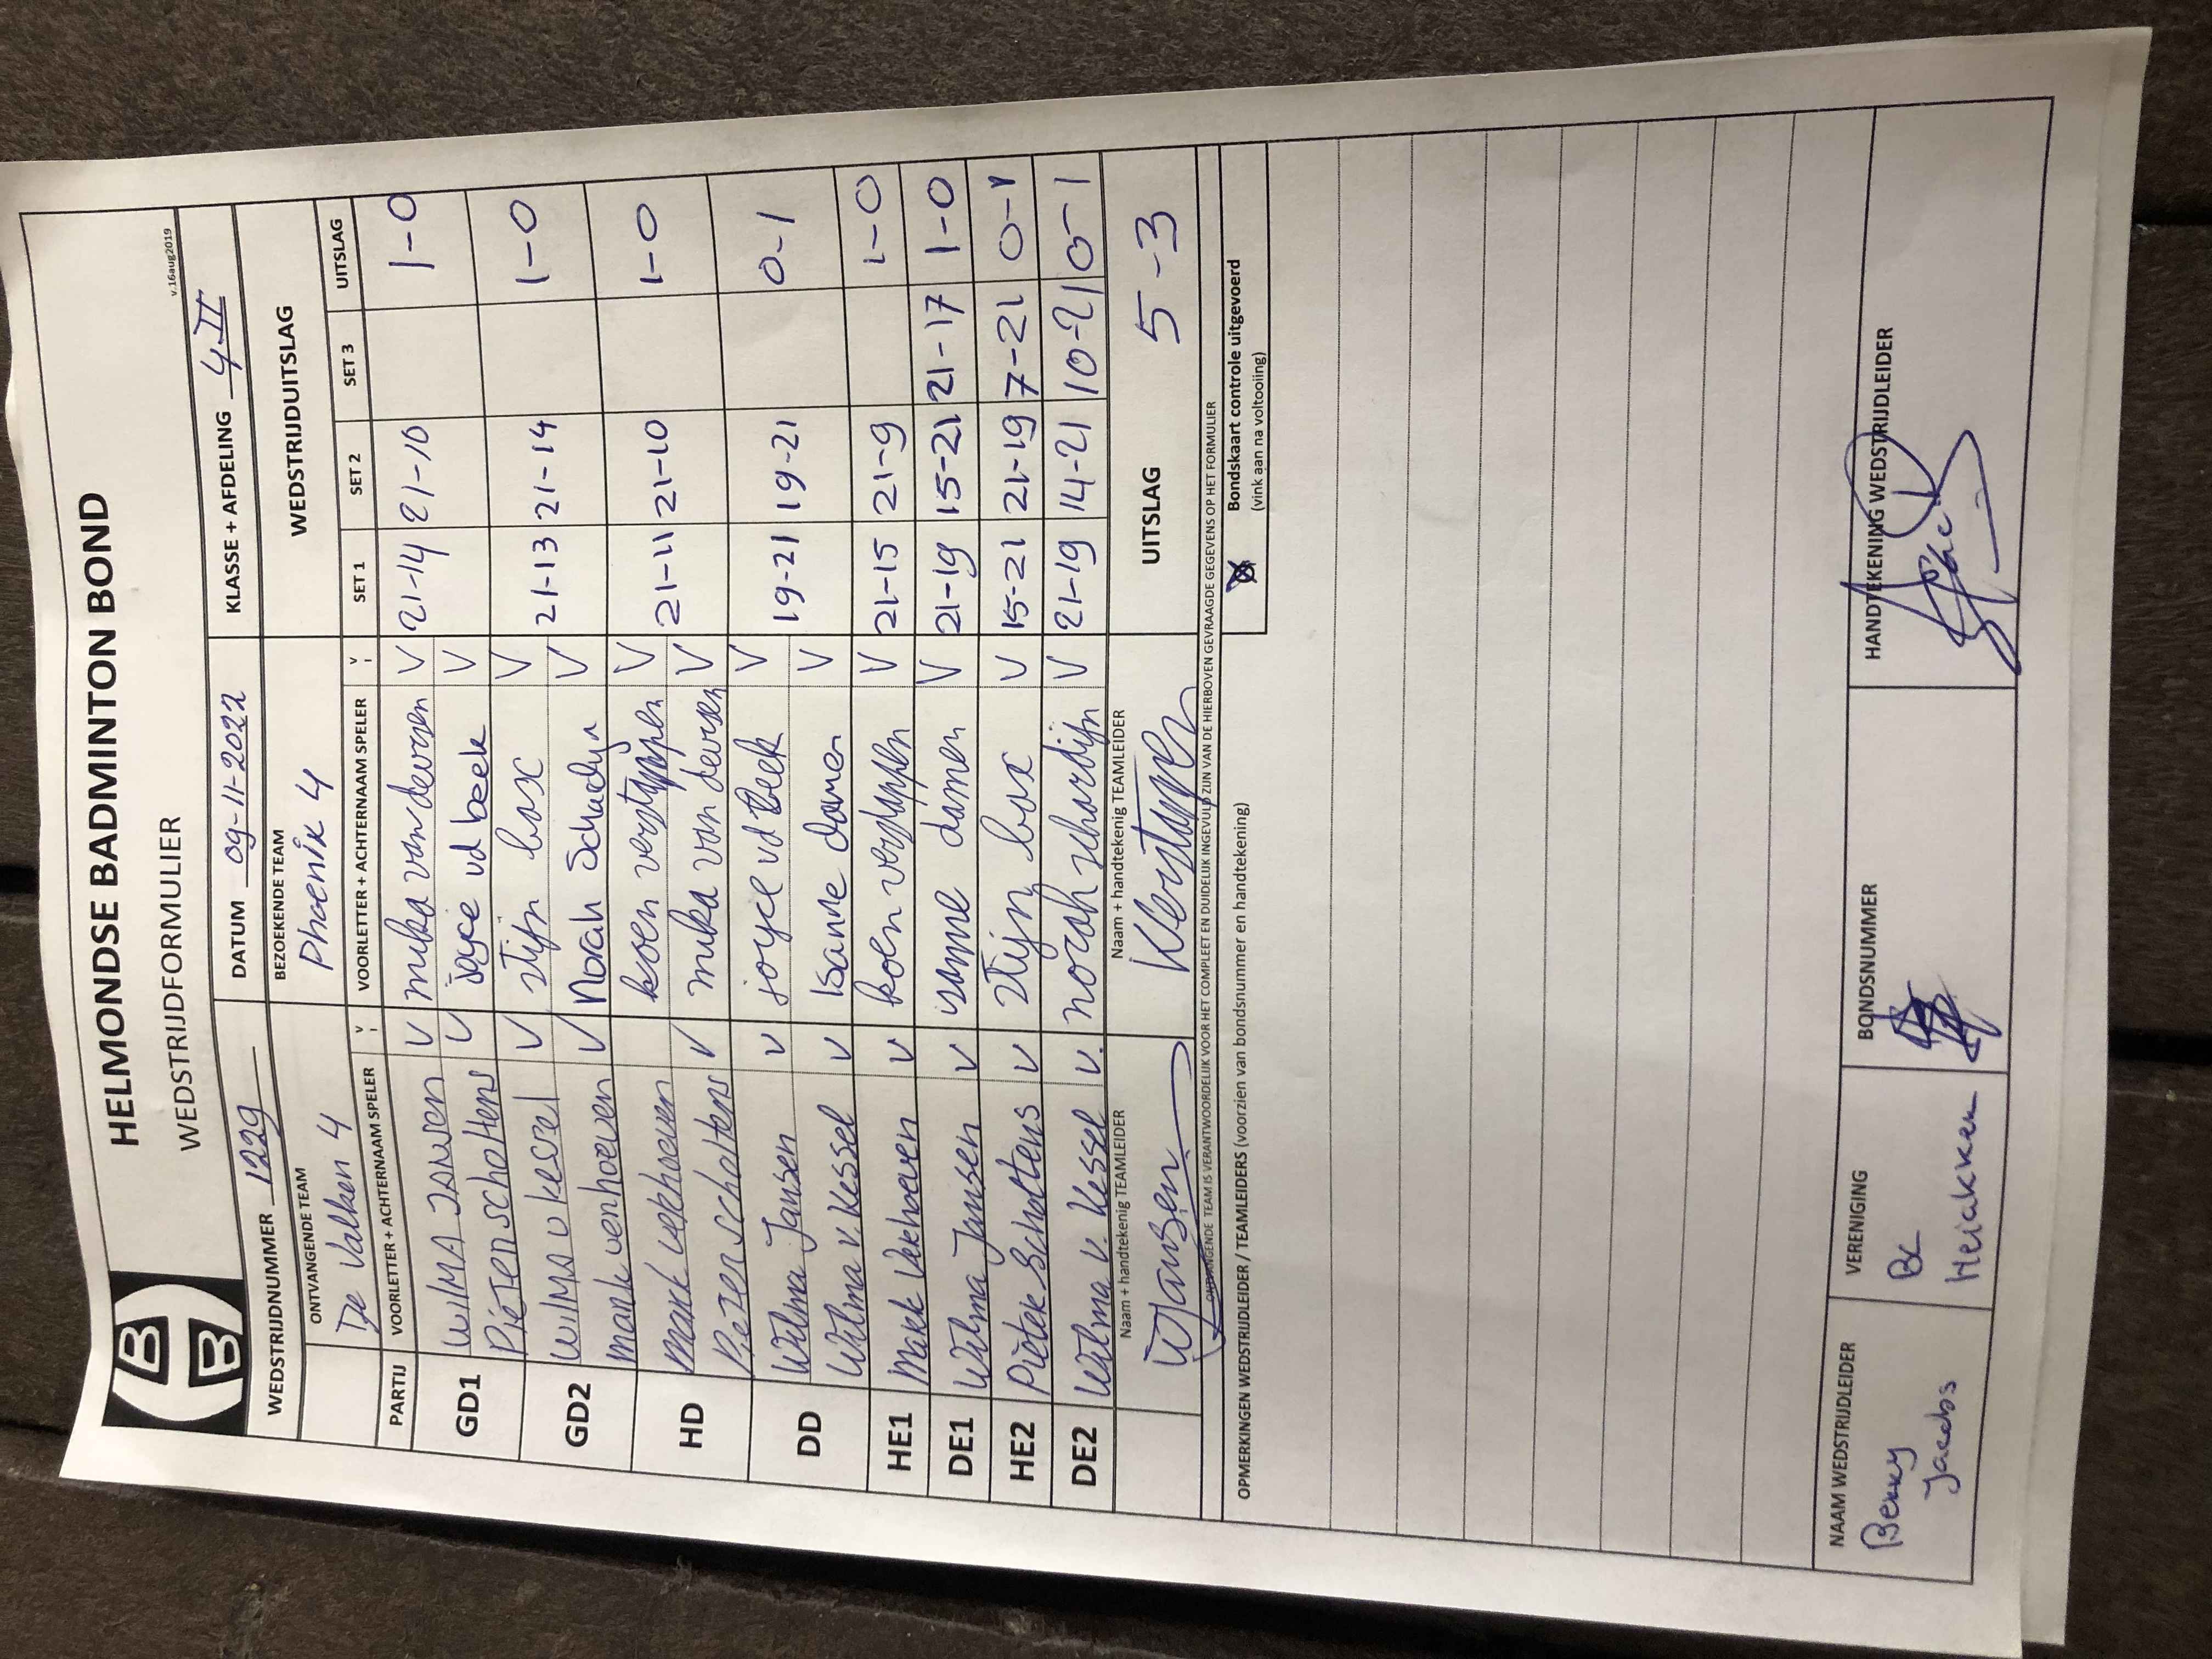 HELMONDSE BADMINTON BOND
WEDSTRIJDFORMULIER
v.16aug2019
HBB
WEDSTRIJDNUMMER 1229 DATUM 09-11-2022 KLASSE + AFDELING 4 II
ONTVANGENDE TEAM BEZOEKENDE TEAM WEDSTRIJDUITSLAG
De Valken 4 Phoenix 4
PARTIJ VOORLETTER + ACHTERNAAM SPELER V VOORLETTER + ACHTERNAAM SPELER V SET 1 SET 2 SET 3 UITSLAG
GD1 WILMA JANSEN V mika van deursen V 21-14 21-10 1-0
Pieter scholtens V joyce vd beek V
GD2 WILMA v kessel V stijn bax V 21-13 21-14 1-0
mark verhoeven V Norah Schuurdijn V
HD mark verhoeven koen verstappen V 21-11 21-10 1-0
Pieter scholtens V mika van deursen V
DD Wilma Jansen V joyce vd beek V 19-21 19-21 0-1
Wilma v kessel V Isanne damen V
HE1 Mark Verhoeven V koen verstappen V 21-15 21-9 1-0
DE1 Wilma Jansen V isanne damen V 21-19 15-21 21-17 1-0
HE2 Pieter Scholtens V Stijn bax V 15-21 21-19 7-21 0-1
DE2 Wilma v. Kessel V. norah V 21-19 14-21 10-21 0-1
Naam + handtekenig TEAMLEIDER Naam + handtekenig TEAMLEIDER UITSLAG 5-3
WJansen KVerstappen
ONTVANGENDE TEAM IS VERANTWOORDELIJK VOOR HET COMPLEET EN DUIDELIJK INGEVULD ZIJN VAN DE HIERBOVEN GEVRAAGDE GEGEVENS OP HET FORMULIER
OPMERKINGEN WEDSTRIJDLEIDER / TEAMLEIDERS (voorzien van bondsnummer en handtekening) Bondskaart controle uitgevoerd
(vink aan na voltooiing)
NAAM WEDSTRIJDLEIDER VERENIGING BONDSNUMMER HANDTEKENING WEDSTRIJDLEIDER
Benny BC
Jacobs Heiakker